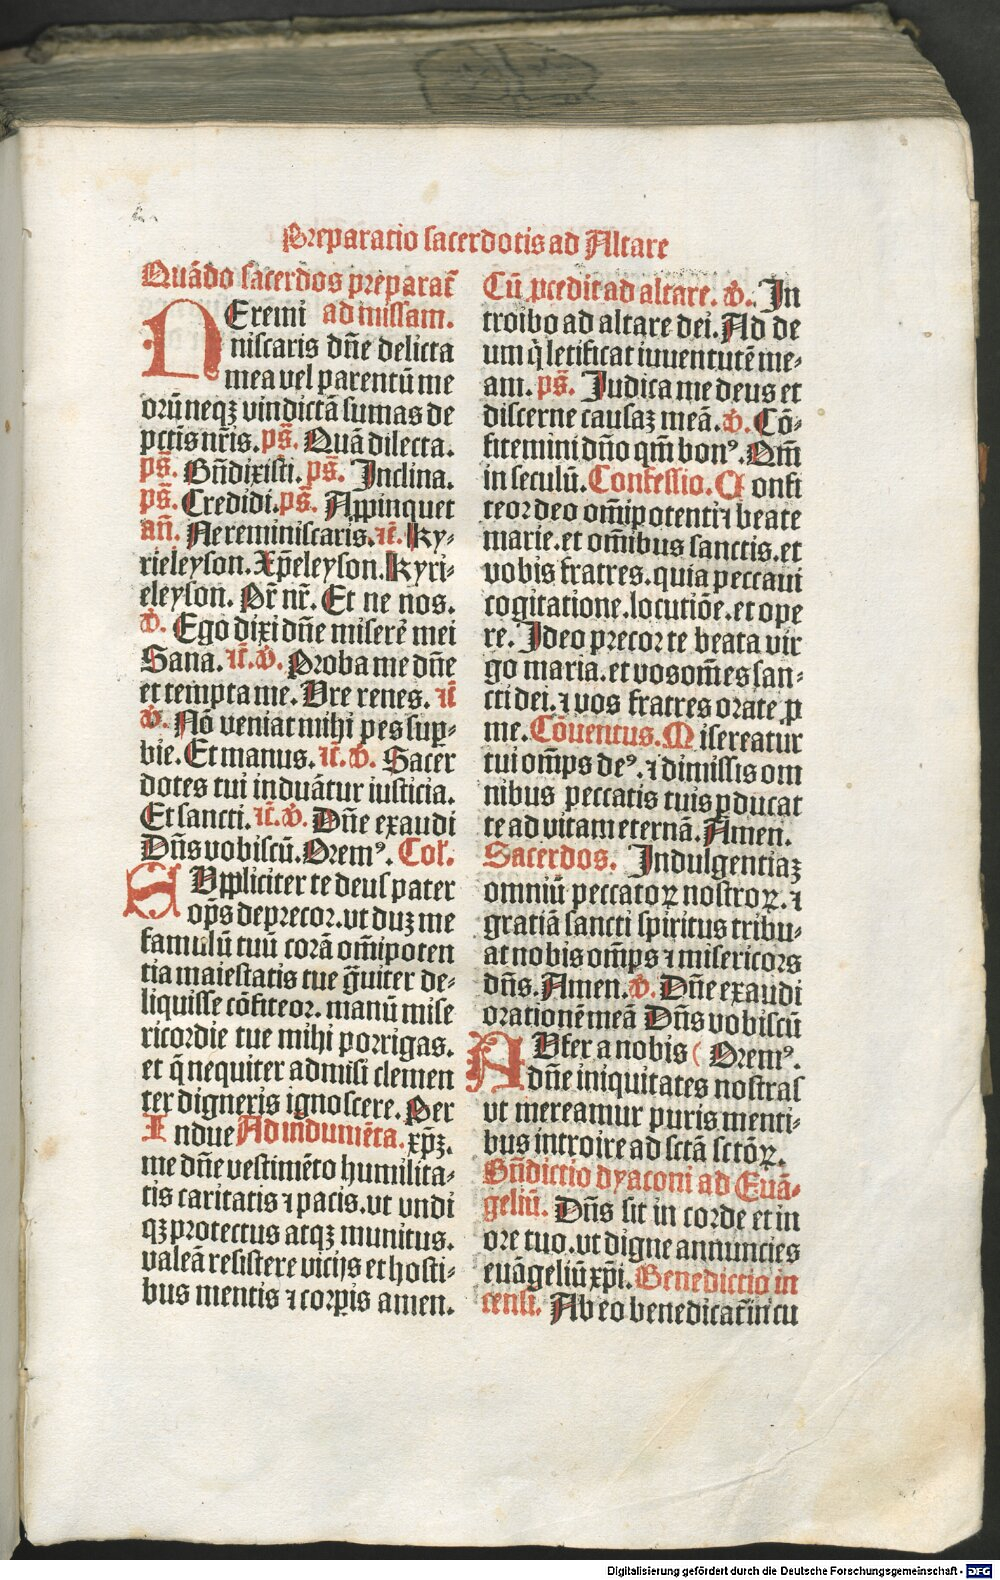 Preparatio sacerdotis ad Altare
Quãdo sacerdos preparat̃
NEremi ad missam.
niscaris dñe delicta
mea vel parentũ me
orũ neqꝫ vindictã sumas de
pctis nr̃is. ps̃. Quã dilecta.
ps̃. Bñdixisti. ps̃. Inclina.
ps̃. Credidi. ps̃. Appinquet
añ. Ne reminiscaris. ⁊c̃. Ky-
rieleyson. Xp̃eleyson. Kyri-
eleyson. Pr̃ nr̃. Et ne nos.
℣. Ego dixi dñe miserẽ mei
Sana. ⁊c̃. ℣. Proba me dñe
et tempta me. Ure renes. ⁊c̃
℣. Nõ veniat mihi pes sup-
bie. Et manus. ⁊c̃. ℣. Sacer
dotes tui induãtur iusticia.
Et sancti. ⁊c̃. ℣. Dñe exaudi
Dñs vobiscũ. Oremꝰ. Col̃.
SUppliciter te deus pater
op̃s deprecor. ut duꝫ me
famulũ tuũ corã om̃ipoten
tia maiestatis tue g̃uiter de-
liquisse cõfiteor. manũ mise
ricordie tue mihi porrigas.
et q̃ nequiter admisi clemen
ter digneris ignoscere. Per
Indue Ad indumẽta. xp̃ꝫ.
me dñe vestimẽto humilita-
tis caritatis ⁊ pacis. ut undi
qꝫ protectus atqꝫ munitus.
valeã resistere vicijs et hosti-
bus mentis ⁊ corpis amen.
Cũ pcedit ad altare. ℣. In
troibo ad altare dei. Ad de
um q̃ letificat iuuentutẽ me-
am. ps̃. Judica me deus et
discerne causaꝫ meã. ℣. Cõ-
fitemini dño qm̃ bonꝰ. Qm̃
in seculũ. Confessio. Confi
teor deo om̃ipotenti ⁊ beate
marie. et om̃ibus sanctis. et
vobis fratres. quia peccaui
cogitatione. locutiõe. et ope
re. Ideo precor te beata vir
go maria. et vos om̃es san-
cti dei. ⁊ vos fratres orate ꝓ
me. Cõuentus. Misereatur
tui om̃ps deꝰ. ⁊ dimissis om
nibus peccatis tuis pducat
te ad vitam eternã. Amen.
Sacerdos. Indulgentiaꝫ
omniũ peccatoꝝ nostroꝝ. ⁊
gratiã sancti spiritus tribu-
at nobis om̃ps ⁊ misericors
dñs. Amen. ℣. Dñe exaudi
orationẽ meã Dñs vobiscũ
AUfer a nobis ( Oremꝰ.
dñe iniquitates nostras
ut mereamur puris menti-
bus introire ad sctã sctõꝝ.
Bñdictio dyaconi ad Euã-
geliũ. Dñs sit in corde et in
ore tuo. ut digne annuncies
euãgeliũ xp̃i. Benedictio in
censi. Ab eo benedicat̃ in cu
Digitalisierung gefördert durch die Deutsche Forschungsgemeinschaft - DFG